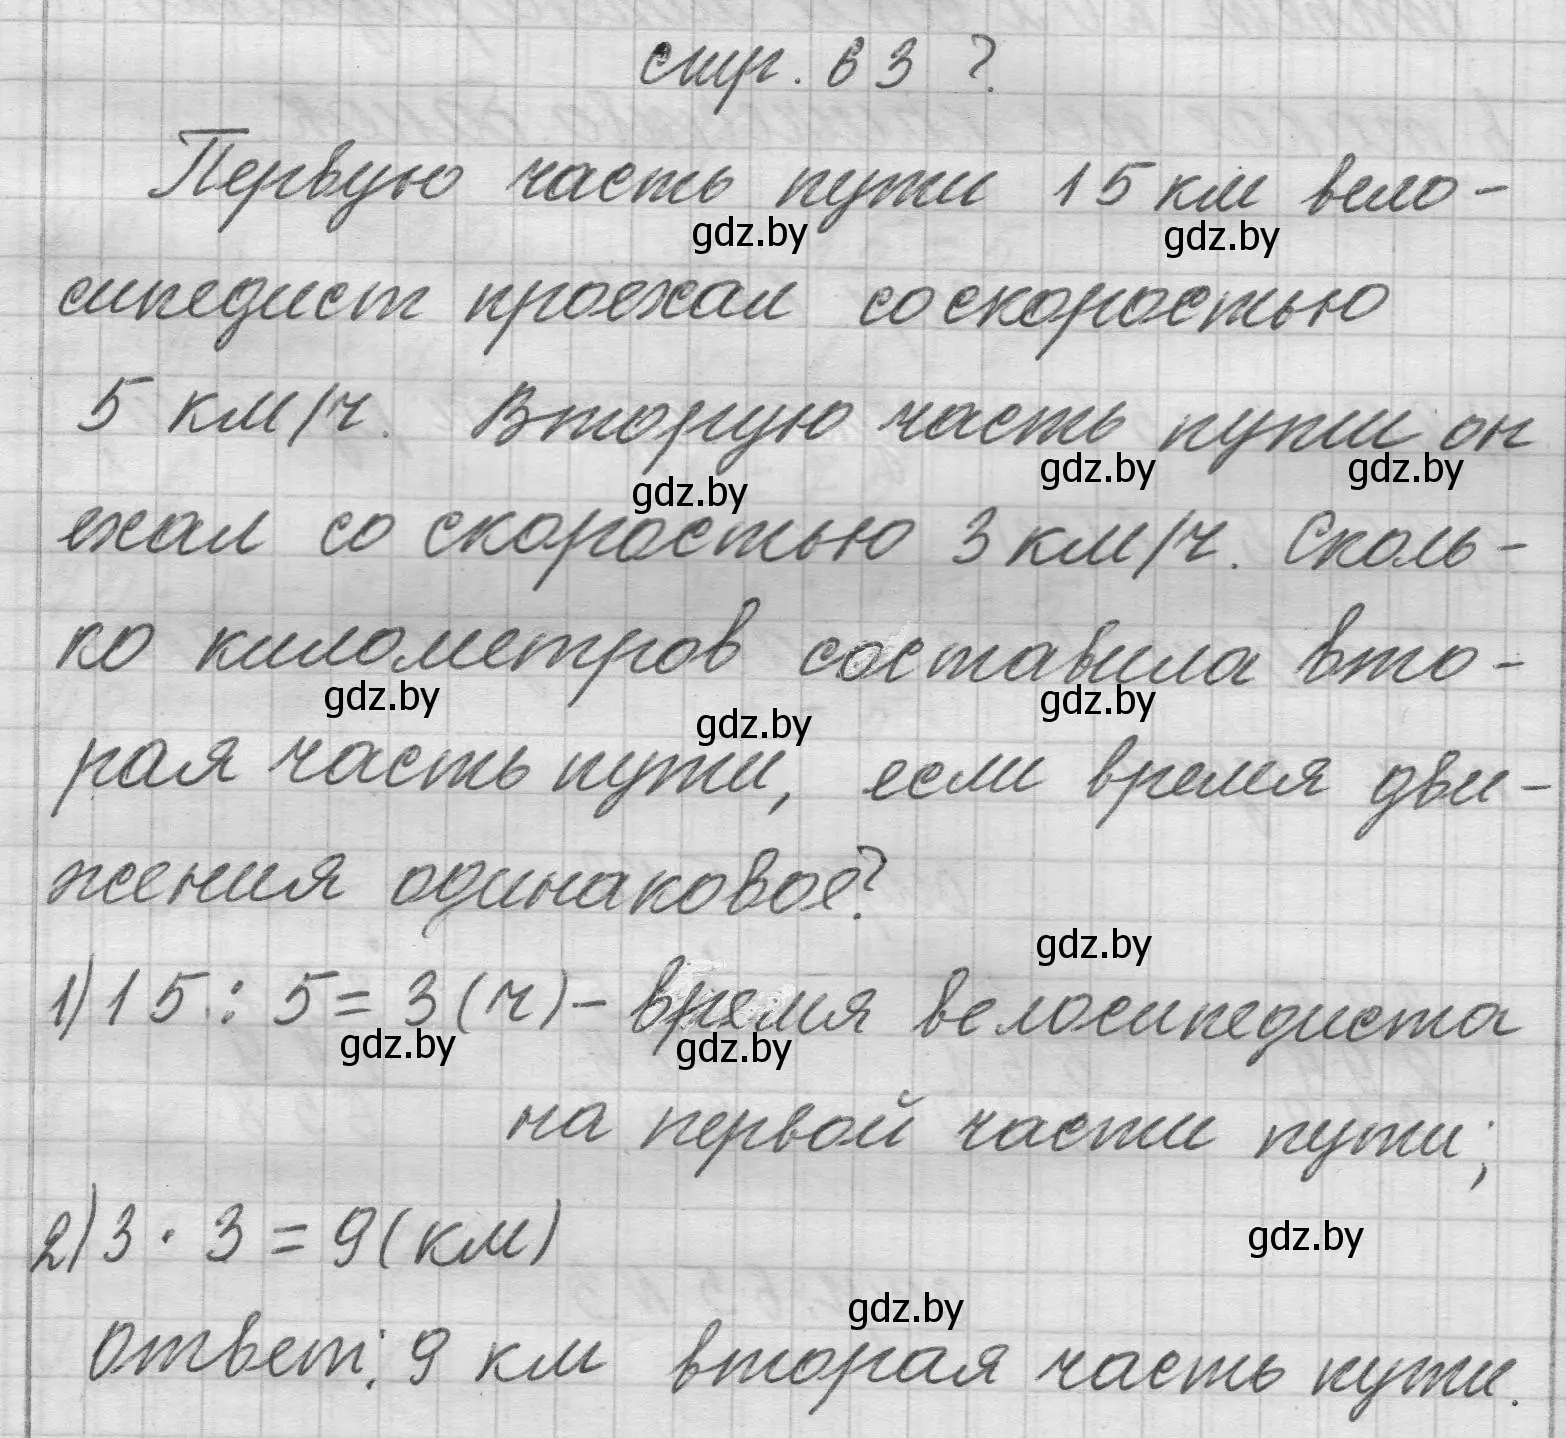 стр. 63 ?
Первую часть пути 15 км вело-
gdz.by gdz.by
сипедист проехал со скоростью
5 км/ч. Вторую часть пути он
gdz.by gdz.by gdz.by
ехал со скоростью 3 км/ч. Сколь-
ко километров составила вто-
gdz.by gdz.by gdz.by
рая часть пути, если время дви-
жения одинаковое?
gdz.by
1) 15 : 5 = 3 (ч) - время велосипедиста
gdz.by gdz.by
на первой части пути;
2) 3 · 3 = 9 (км)
gdz.by
gdz.by
Ответ: 9 км вторая часть пути.